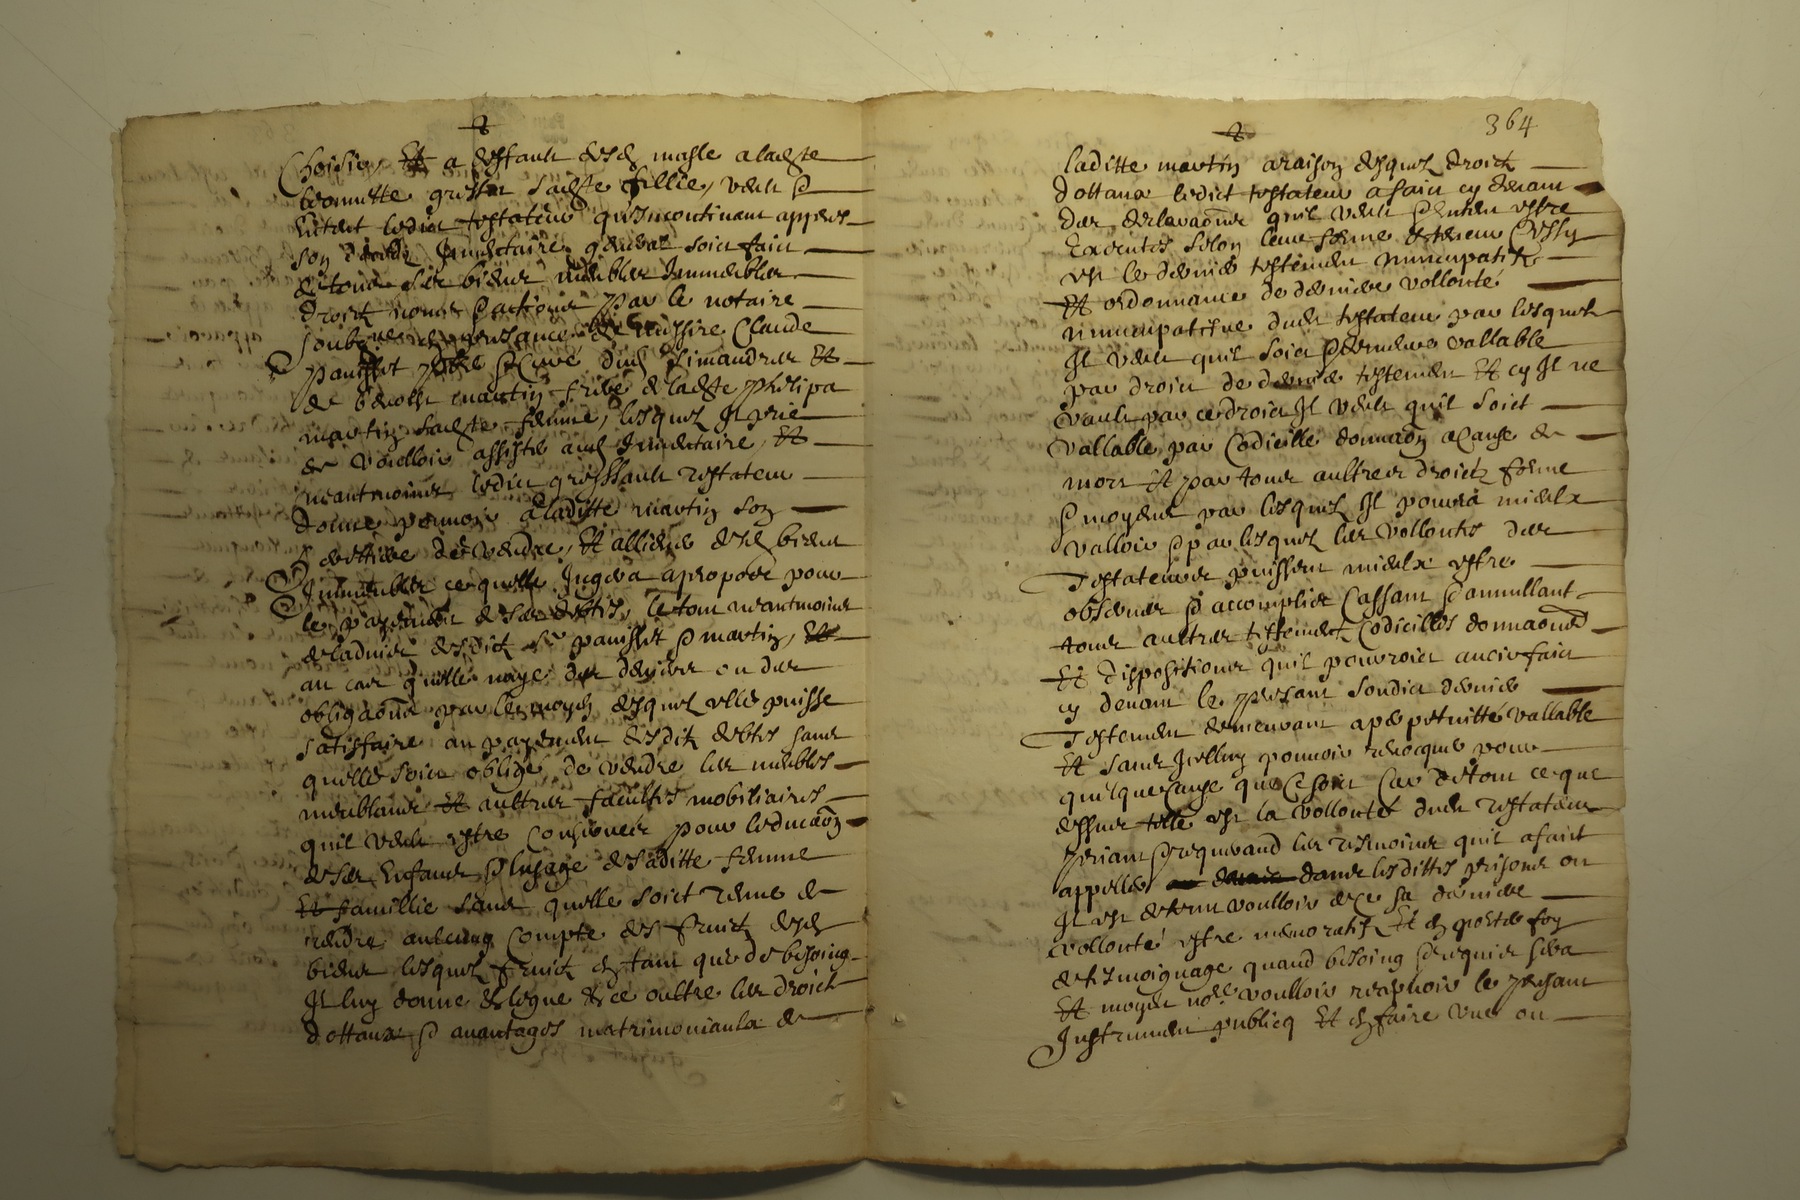 Choisie, Et a deffault desd masle a ladte
veult &
Entent ledict testateur quincontinant appres
son deces Inventaire general soict faict
de tous ses biens meubles Immeubles
droictz noms & actions par le notaire
soubzne en presance de Messire Claude
& Curé dud Et
de martin frere de ladte philipa
martin sadte femme, lesquelz Il prie
de voulloir assister aud Inventaire, Et
neantmoings ledict testateur
donne pouvoir a laditte martin son
de vendre, Et alliener desd biens
Immeubles ce quelle Jugera a propos pour
le payement de ses debtes, le tout neantmoins
de ladvis desdictz sr & martin, Et
au cas quelle naye des deniers ou des
obligaons par le moyen desquelz elle puisse
satisfaire au payement desditz debtes sans
quelle soict obligé de vendre les meubles
meublans Et aultres facultes mobiliaires
quil veult estre conservees pour leducaon
de ses Enfans & lusage de saditte femme
Et famillie sans quelle soict tenue de
rendre aulcung compte des fruictz desd
biens lesquelz fruictz en tant que de besoing
Il luy donne & legue & ce oultre les droictz
dottaux & avantages matrimoniaulx de
364
laditte martin a raison desquelz droictz
dottaux ledict testateur a faict cy devant
des declaraons quil veult & Entend estre
Executes selon leur forme & teneur Cessy
est le dernier testement nuncupatif
Et ordonnance de derniere vollonté
nuncupatifve dud testateur par lesquelz
Il veult quil soict & demeure vallable
par droict de dernier testement Et cy Il ne
vault par ce droict Il veult quil soict
vallable par Codicille donnaon a cause de
mort Et par tous aultres droictz forme
& moyens par lesquelz Il pourra mieulx
valloir & par lesquelz les vollontes des
Testateurs puissent mieulx estre
observees & accomplies Cassant & annullant
tous aultres testementz Codicilles donnaons
Et dispositions quil pourroict avoir faict
cy devant le presant sondict dernier
Testement demeurant a perpetuitté vallable
Et sans Icelluy pouvoir revocquer pour
quelque cause que ce soit Car de tout ce que
dessus telle est la vollonté dud testateur
priant & requerand les tesmoins quil a faict
appeller dans lesdittes prisons ou
Il est detenu voulloir de ce sa derniere
vollonté estre memoratifz Et en porter foy
de tesmoignage quand besoing & requis sera
Et moyen nore voulloir recepvoir le presant
Instrument publicq Et en faire une ou